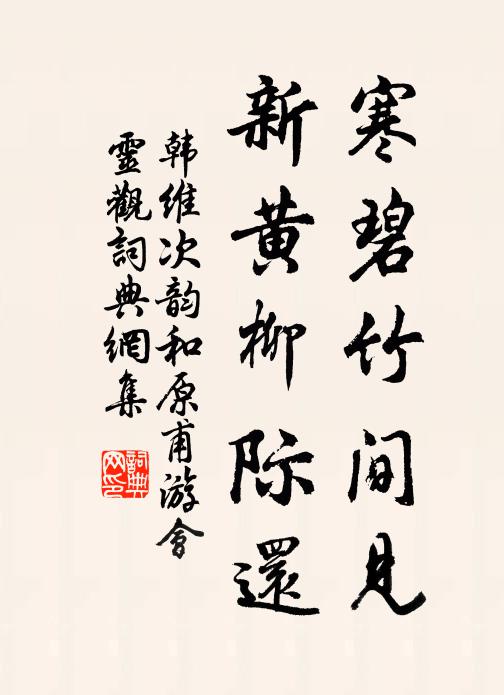 寒碧竹间见
新黄柳际还
韩维次韵和原甫游會
靈觀詞典網集
詞典网印